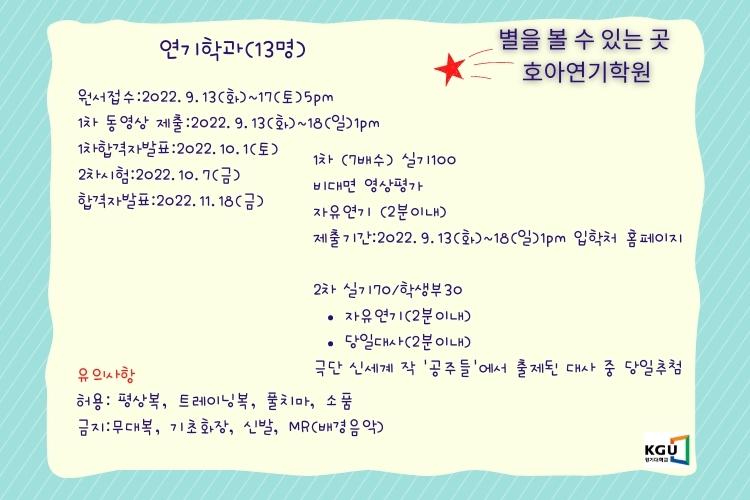 연기학과(13명)
별을 볼 수 있는 곳
호아연기학원
원서접수:2022. 9. 13(화)~17(토)5pm
1차 동영상 제출:2022. 9. 13(화)~18(일)1pm
1차합격자발표:2022. 10. 1(토)
2차시험:2022. 10. 7(금)
합격자발표:2022. 11. 18(금)
1차 (7배수) 실기100
비대면 영상평가
자유연기 (2분이내)
제출기간:2022. 9. 13(화)~18(일)1pm 입학처 홈페이지
2차 실기70/학생부30
• 자유연기(2분이내)
• 당일대사(2분이내)
극단 신세계 작 '공주들'에서 출제된 대사 중 당일추첨
유의사항
허용: 평상복, 트레이닝복, 풀치마, 소품
금지:무대복, 기초화장, 신발, MR(배경음악)
KGU
경기대학교